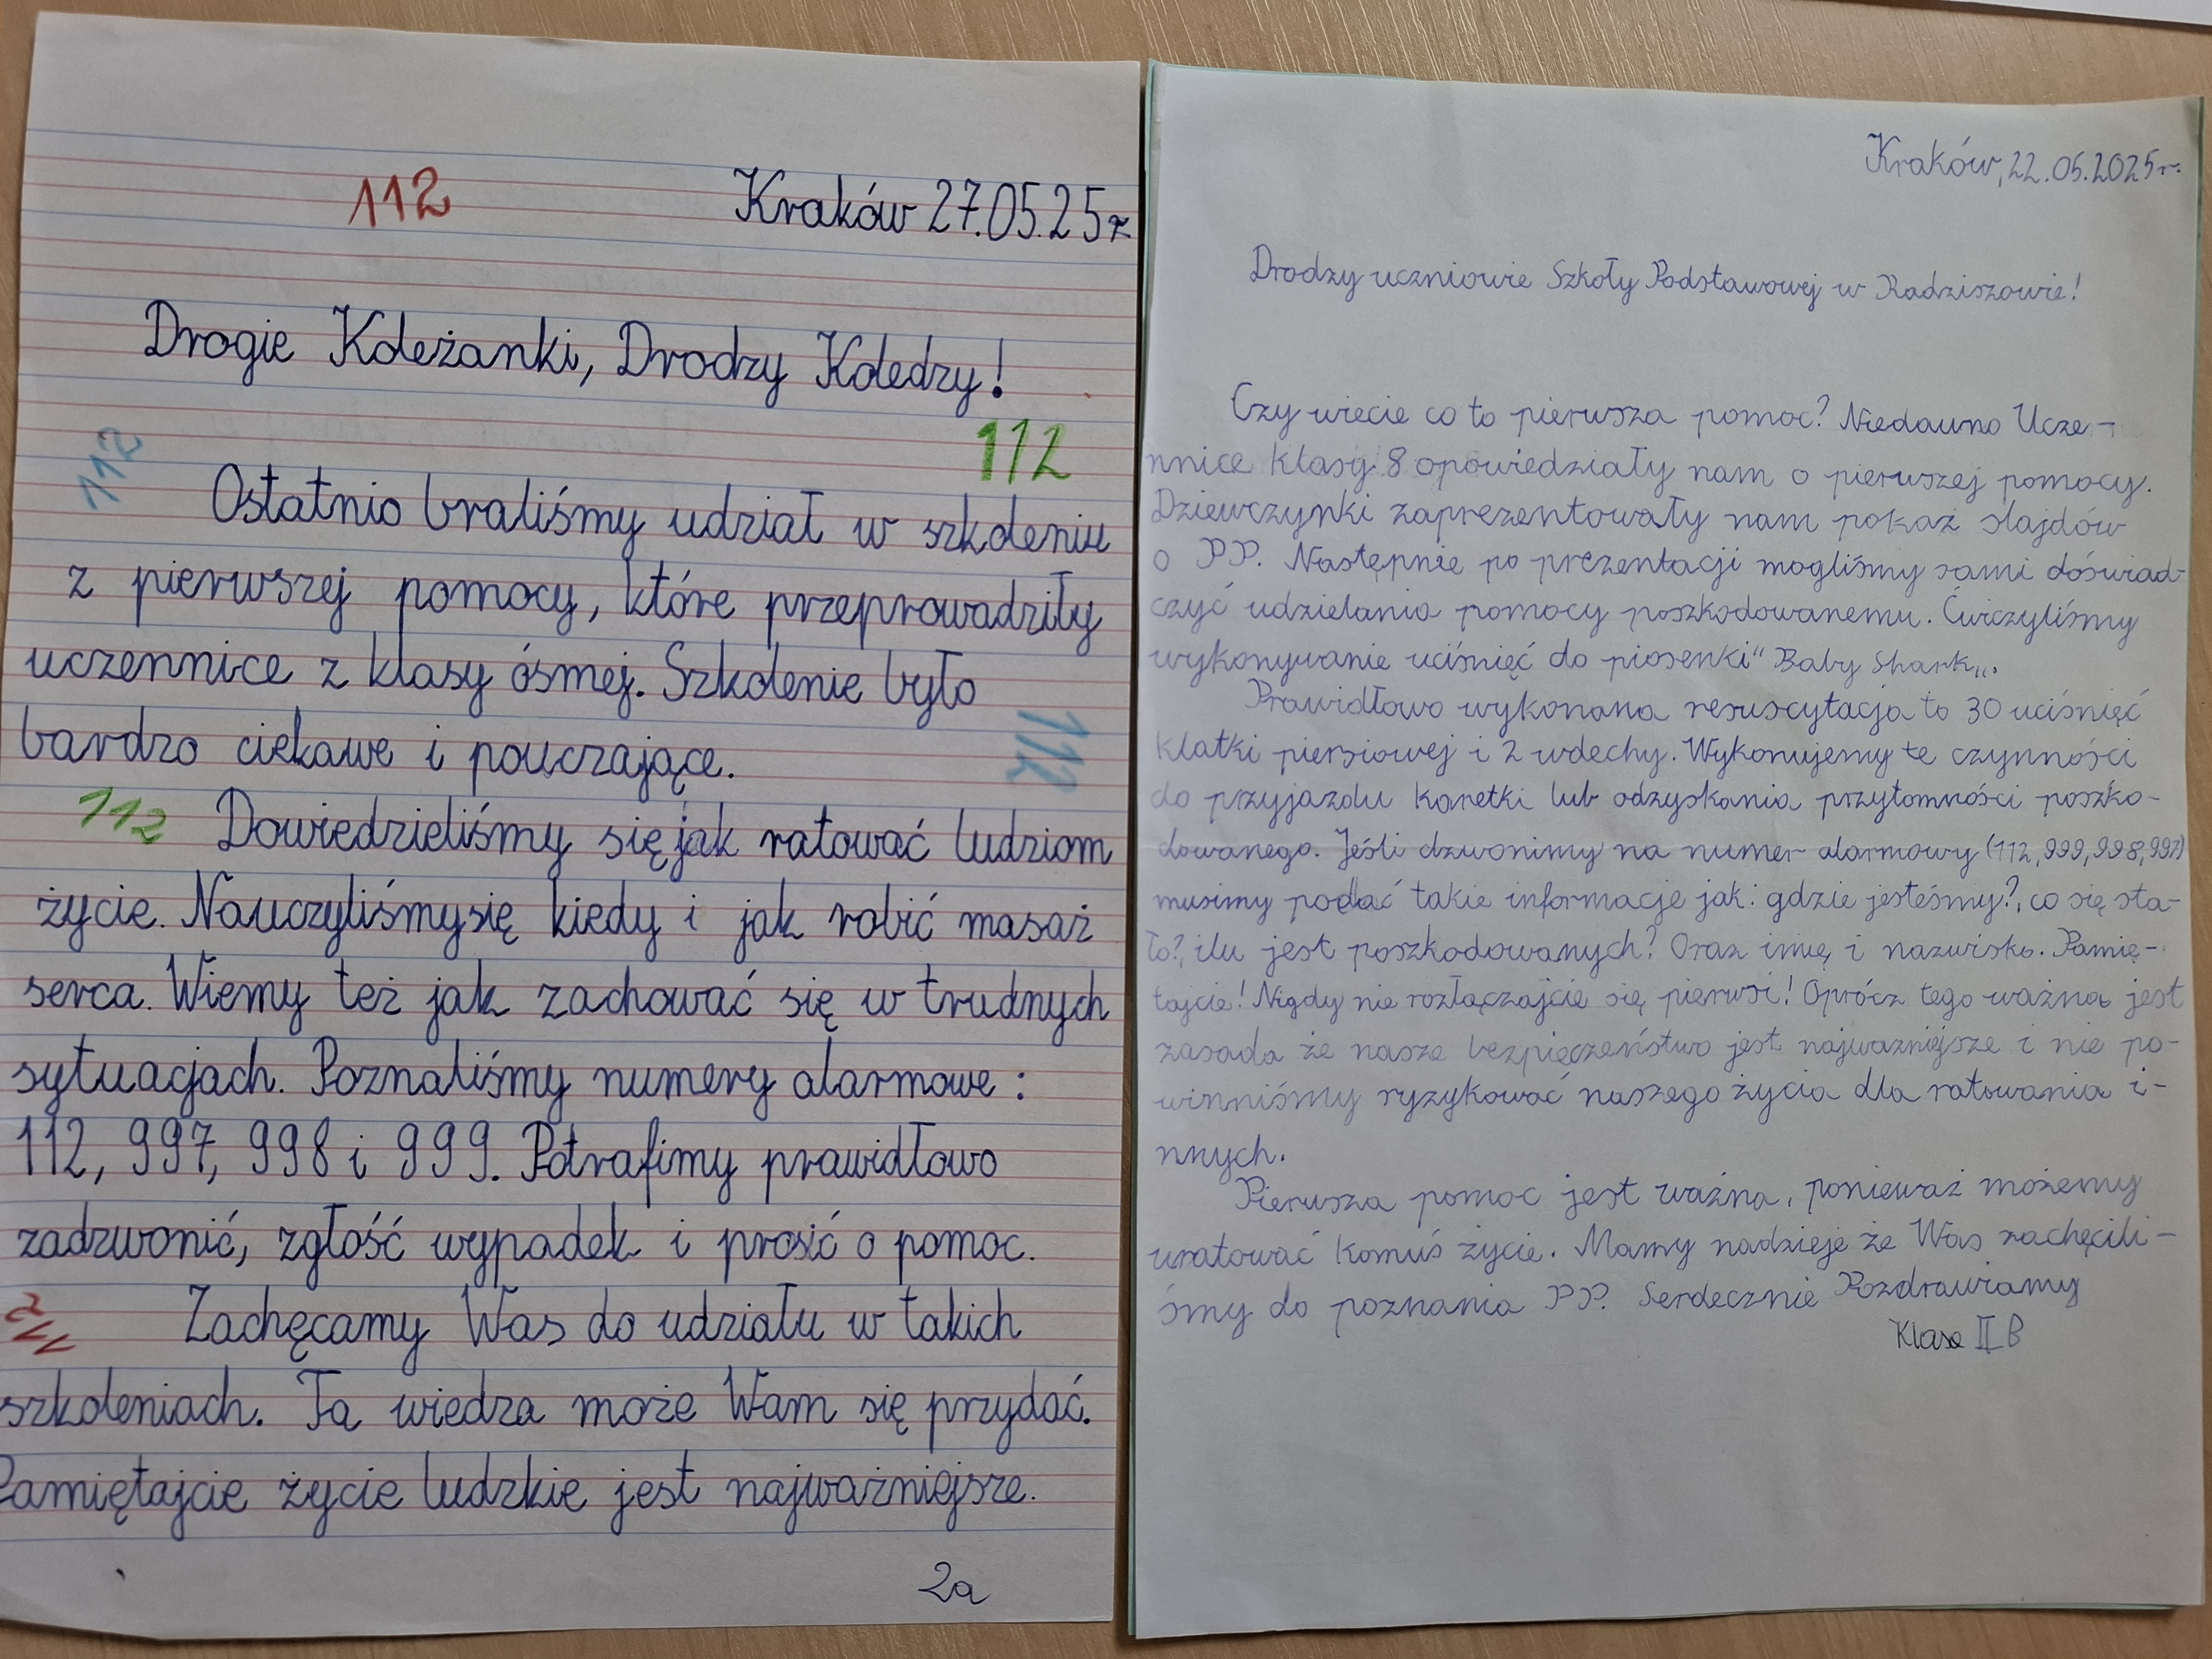 112
Kraków 27.05.25r
Drogie Koleżanki, Drodzy Koledzy!
112
112
Ostatnio braliśmy udział w szkoleniu
z pierwszej pomocy, które przeprowadziły
uczennice z klasy ósmej. Szkolenie było
bardzo ciekawe i pouczające.
112
112
Dowiedzieliśmy się jak ratować ludziom
życie. Nauczyliśmy się kiedy i jak robić masaż
serca. Wiemy też jak zachować się w trudnych
sytuacjach. Poznaliśmy numery alarmowe:
112, 997, 998 i 999. Potrafimy prawidłowo
zadzwonić, zgłość wypadek i prosić o pomoc.
112
Zachęcamy Was do udziału w takich
szkoleniach. Ta wiedza może Wam się przydać.
Pamiętajcie życie ludzkie jest najważniejsze.
2a
Kraków, 22.05.2025r.
Drodzy uczniowie Szkoły Podstawowej w Radziszowie!
Czy wiecie co to pierwsza pomoc? Niedawno Ucze-
nnice klasy 8 opowiedziały nam o pierwszej pomocy.
Dziewczynki zaprezentowały nam pokaz slajdów
o PP. Następnie po prezentacji mogliśmy sami dóswiad-
czyć udzielania pomocy poszkodowanemu. Ćwiczyliśmy
wykonywanie uciśnięć do piosenki" Baby Shark,,.
Prawidłowo wykonana resuscytacja to 30 uciśnięć
klatki piersiowej i 2 wdechy. Wykonujemy te czynności
do przyjazdu karetki lub odzyskania przytomności poszko-
dowanego. Jeśli dzwonimy na numer alarmowy (112, 999, 998, 997)
musimy podać takie informacje jak: gdzie jesteśmy?, co się sta-
ło?, ilu jest poszkodowanych? Oraz imię i nazwisko. Pamię-
tajcie! Nigdy nie rozłączajcie się pierwsi! Oprócz tego ważna jest
zasada że nasze bezpieczeństwo jest najważniejsze i nie po-
winniśmy ryzykować naszego życia dla ratowania i-
nnych.
Pierwsza pomoc jest ważna, ponieważ możemy
uratować komuś życie. Mamy nadzieje że Was zachęcili-
śmy do poznania PP. Serdecznie Pozdrawiamy
Klasa II B